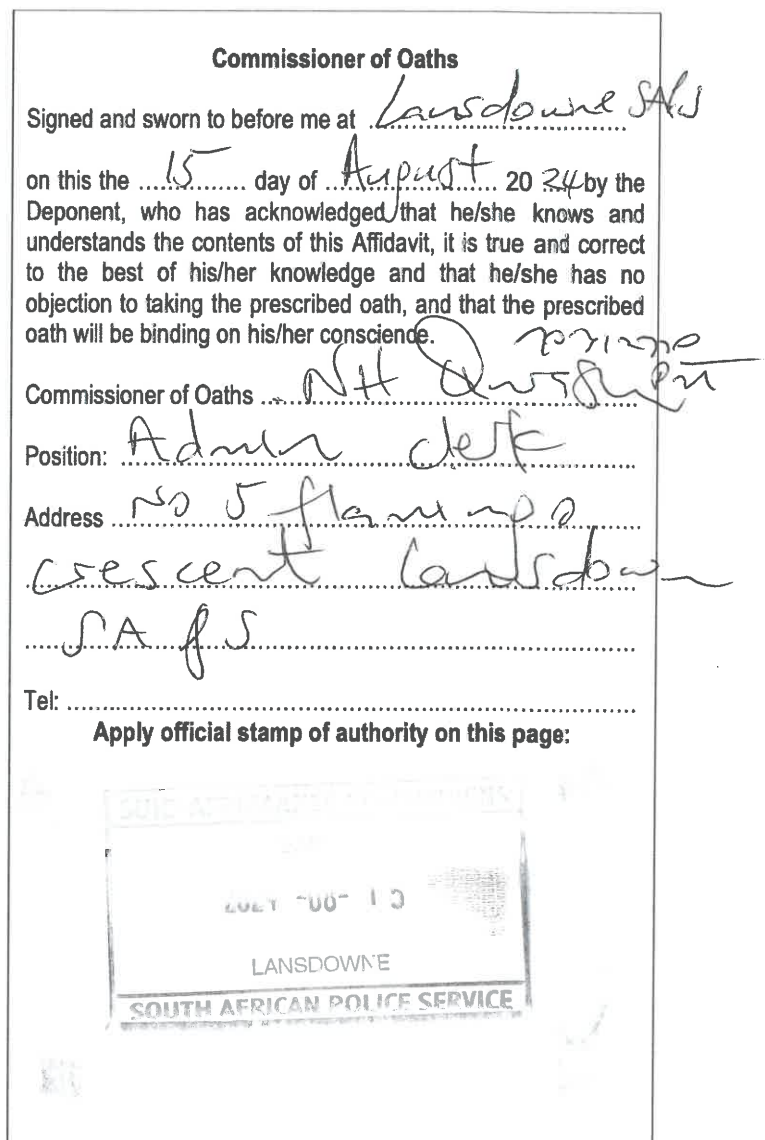 Commissioner of Oaths
Signed and sworn to before me at Lansdowne SAPS
on this the ......15......... day of ...August........ 20 24 by the
Deponent, who has acknowledged that he/she knows and
understands the contents of this Affidavit, it is true and correct
to the best of his/her knowledge and that he/she has no
objection to taking the prescribed oath, and that the prescribed
oath will be binding on his/her conscience.
Commissioner of Oaths .... NH
Position: Admin clerk
Address No 5 flamingo
crescent Lansdown
SAPS
Tel: ....................................................................
Apply official stamp of authority on this page:
LANSDOWNE
SOUTH AFRICAN POLICE SERVICE